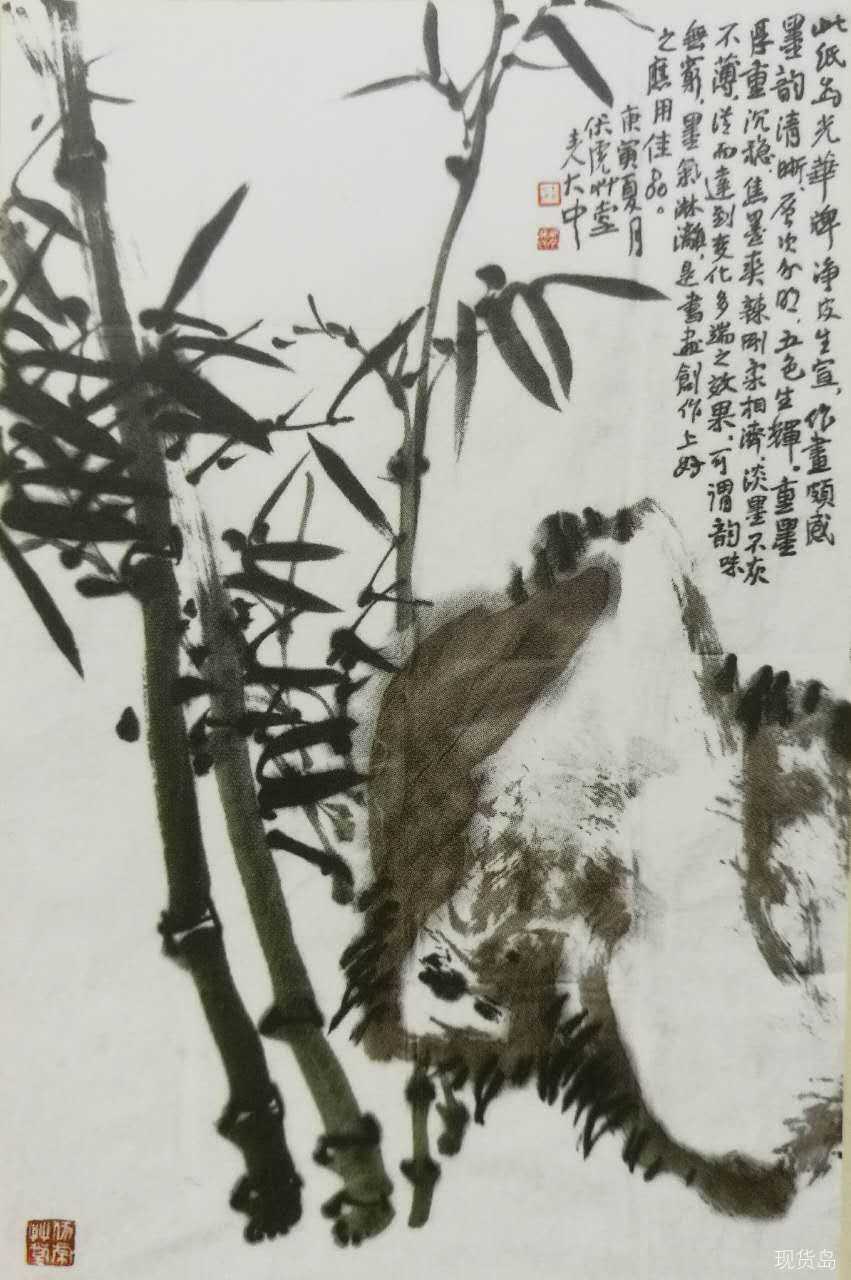 此纸为光華牌净皮生宣，作畫頗感
墨韵清晰，层次分明，五色生輝。重墨
厚重沉稳，焦墨爽辣刚柔相濟，淡墨不灰
不薄，从而達到变化多端之效果，可谓韵味
無窮，墨氣淋漓，是書畫創作上好
之應用佳品。
庚寅夏月
伏虎艸堂
主人大中
伏虎艸堂
现货岛